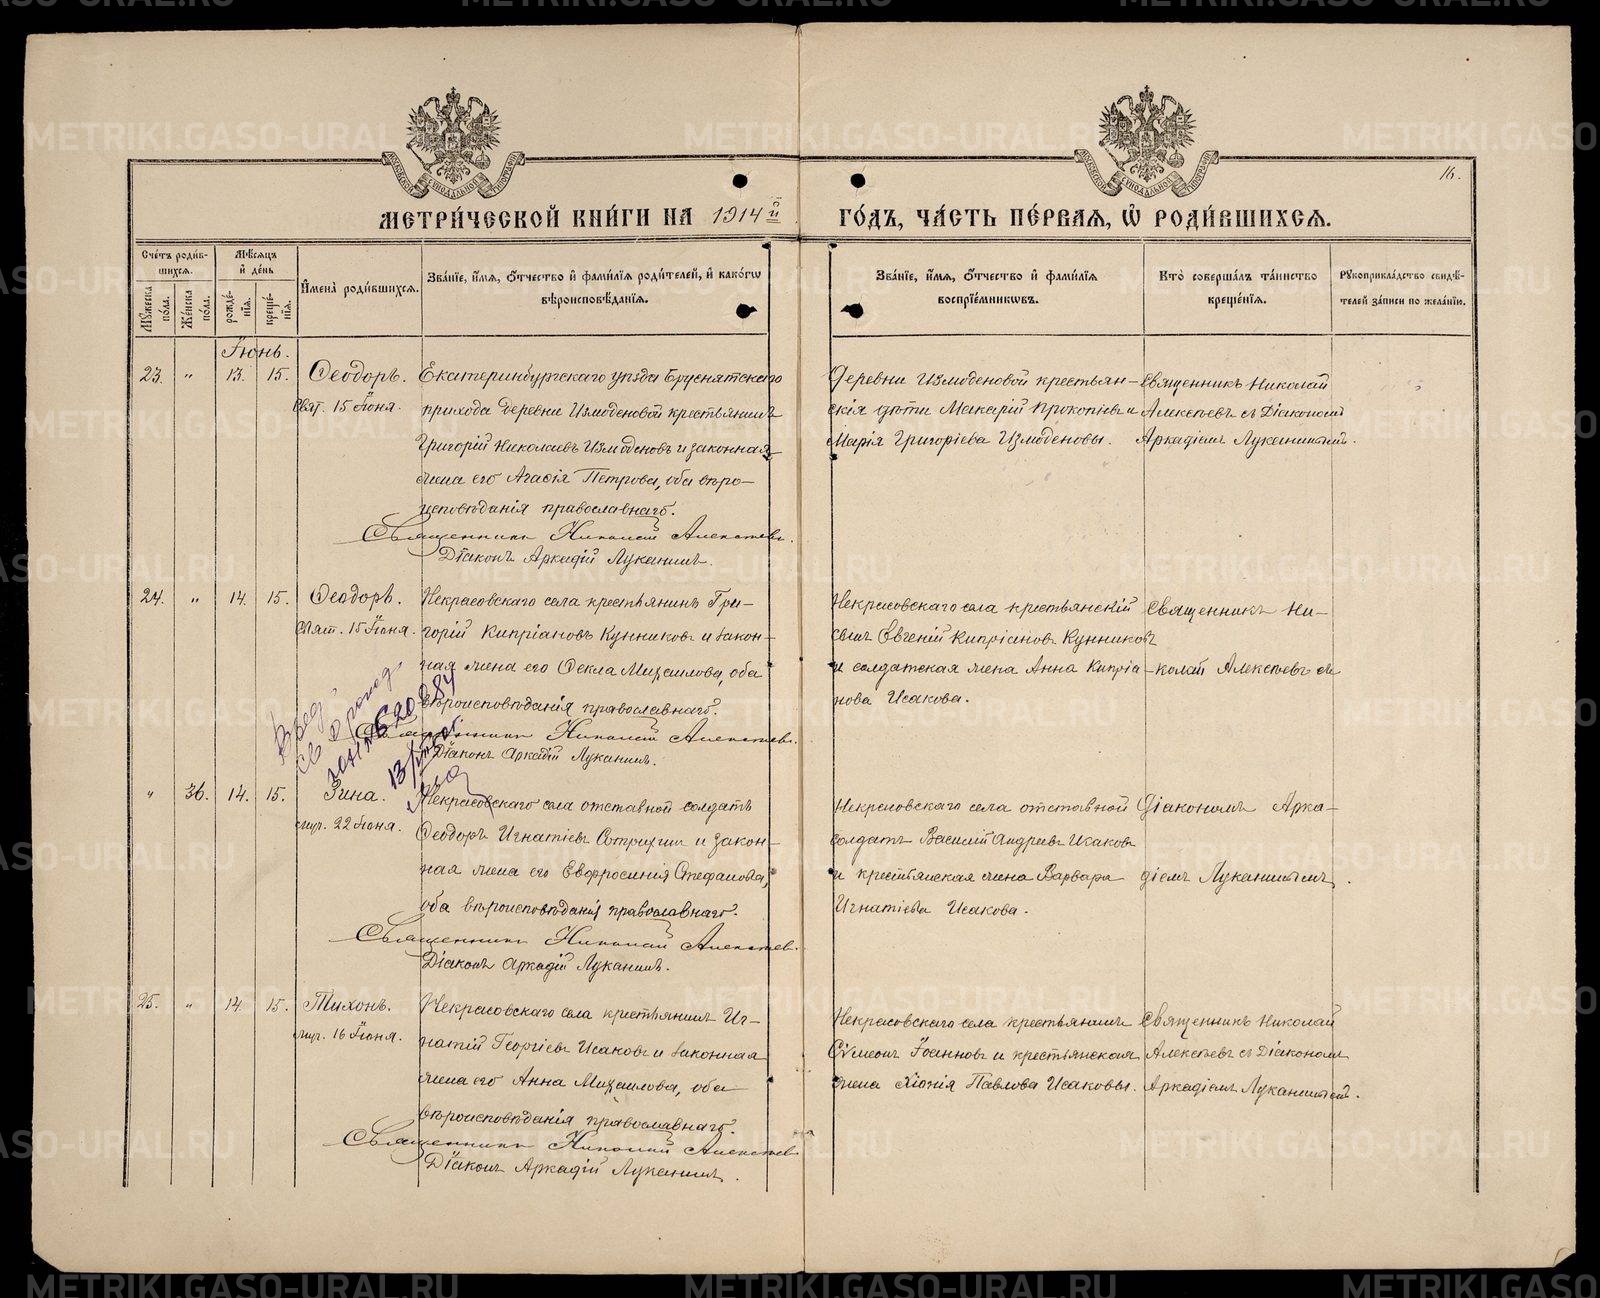 16.
МЕТРИ́ЧЕСКОЙ КНИ́ГИ НА 1914й ГО́ДЪ, ЧА́СТЬ ПЕ́РВАЯ, Ѿ РОДИ́ВШИХСЯ.
Сче́тъ роди́в-
шихся.
Му́жеска по́ла.
Же́нска по́ла.
Мѣ́сяцъ
и де́нь
рожде́-
нія.
креще́-
нія.
Имена̀ роди́вшихся.
Зва́ніе, и́мя, о́тчество и фами́лія роди́телей, и како́гѡ
вѣроисповѣ́данія.
Зва́ніе, и́мя, о́тчество и фами́лія
воспріе́мниковъ.
Кто̀ соверша́лъ та́инство
креще́нія.
Рукоприкла́дство свидѣ́-
телей за́писи по жела́нію.
Іюнь.
23. " 13. 15. Ѳеодоръ.
свят. 15 Іюня.
Екатеринбургскаго уѣзда Бруснятскаго
прихода деревни Измоденовой крестьянинъ
Григорій Николаевъ Измоденовъ и законная
жена его Агафія Петрова, оба вѣро-
исповѣданія православнаго.
Священникъ Николай Алексѣевъ.
Діаконъ Аркадій Луканинъ.
Деревни Измоденовой крестьян-
скія дѣти Макарій Прокопіевъ и
Марія Григоріева Измоденовы.
Священникъ Николай
Алексѣевъ съ Діакономъ
Аркадіемъ Луканинымъ.
24. " 14. 15. Ѳеодоръ.
свят. 15 Іюня.
Некрасовскаго села крестьянинъ Гри-
горій Кипріановъ Кунниковъ и закон-
ная жена его Ѳекла Михаилова, оба
вѣроисповѣданія православнаго.
Священникъ Николай Алексѣевъ.
Діаконъ Аркадій Луканинъ.
Некрасовскаго села крестьянскій
сынъ Евгеній Кипріановъ Кунниковъ
и солдатская жена Анна Кипріа-
нова Исакова.
Священникъ Ни-
колай Алексѣевъ
св о рожд.
" 36. 14. 15. Зина.
муч. 22 Іюня.
Некрасовскаго села отставной солдатъ
Ѳеодоръ Игнатіевъ и закон-
ная жена его Евфросинія Стефанова,
оба вѣроисповѣданія православнаго.
Священникъ Николай Алексѣевъ.
Діаконъ Аркадій Луканинъ.
Некрасовскаго села отставной
солдатъ Василій Андреевъ Исаковъ
и крестьянская жена Варвара
Игнатіева Исакова.
Діакономъ Арка-
діемъ Луканинымъ.
25. " 14. 15. Тихонъ.
муч. 16 Іюня.
Некрасовскаго села крестьянинъ Иг-
натій Георгіевъ Исаковъ и законная
жена его Анна Михаилова, оба
вѣроисповѣданія православнаго.
Священникъ Николай Алексѣевъ
Діаконъ Аркадій Луканинъ.
Некрасовскаго села крестьянинъ
Сѵмеонъ Іоанновъ и крестьянская
жена Хіонія Павлова Исаковы.
Священникъ Николай
Алексѣевъ съ Діакономъ
Аркадіемъ Луканинымъ.
METRIKI.GASO-URAL.RU